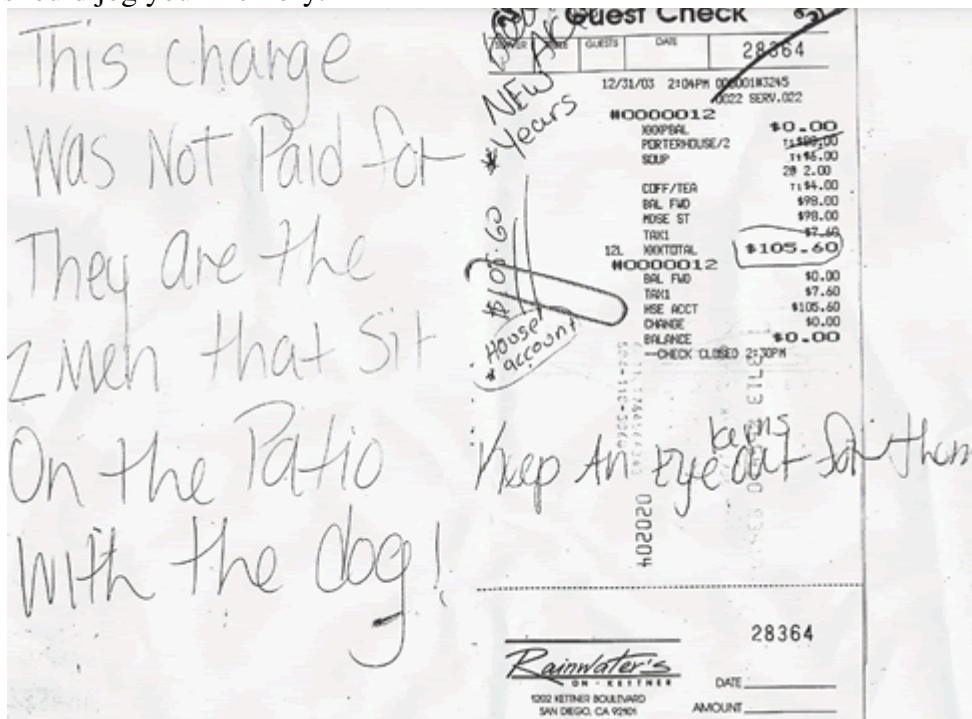 This charge
Was Not Paid for
They are the
2 Men that Sit
On the Patio
With the dog!
NEW
Years
$105.60
House
account
Guest Check
GUESTS DATE
28364
12/31/03 2:04PM
0022 SERV.022
#0000012
XXXPBAL $0.00
PORTERHOUSE/2
SOUP T1$6.00
2@ 2.00
COFF/TEA T1$4.00
BAL FWD $98.00
MDSE ST $98.00
TAX1 $7.60
12L XXXTOTAL $105.60
#0000012
BAL FWD $0.00
TAX1 $7.60
HSE ACCT $105.60
CHANGE $0.00
BALANCE $0.00
--CHECK CLOSED 2:30PM
Keep An Eye out for them
402020
28364
Rainwater's
ON · KETTNER
1202 KETTNER BOULEVARD
SAN DIEGO, CA 92101
DATE
AMOUNT